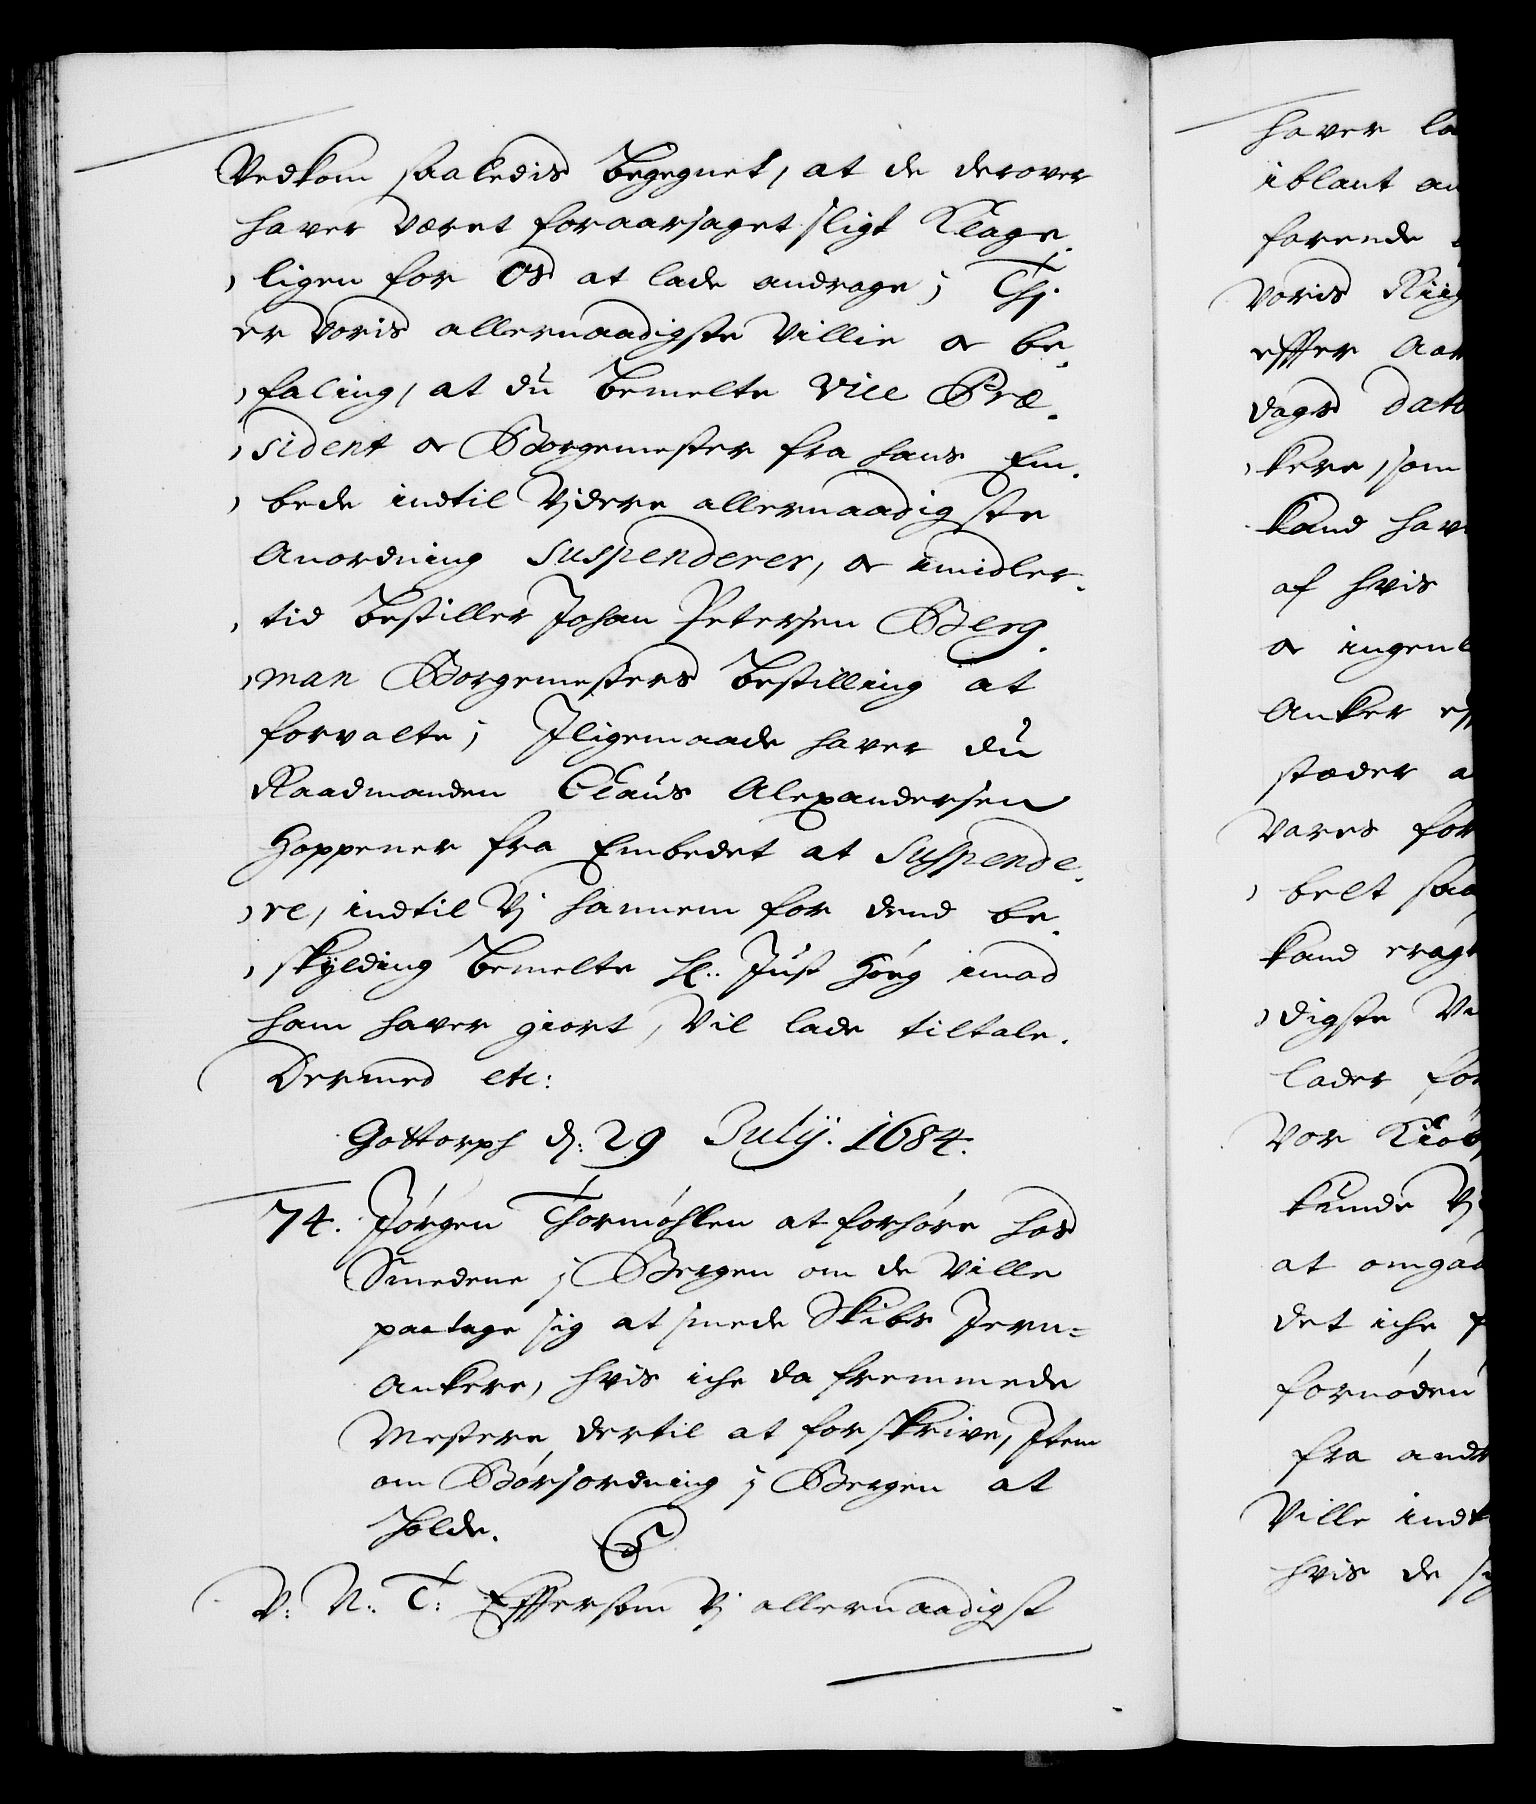 Vedkom saaledis begegnet, at de derover
haver været foraarsaget sligt Klage-
ligen for Os at lade andrage; Thj
er voris allernaadigste Villie oc be-
faling, at du bemelte Vice Præ-
sident oc Borgemester fra hans Em-
bede indtil Vjdere allernaadigste
Anordning suspenderer, oc imidler-
tid bestiller Johan Petersen Berg-
man Borgemesters bestilling at
forvalte; Jligemaade haver du
Raadmanden Claus Alexandersen
Hoppener fra Embedet at Suspende-
re, indtil Vj hannem for dend be-
skylding bemelte H: Just Høeg imod
ham haver giort, Vil lade tiltale.
Dermed etc:
Gottorph d: 29 Julij. 1684.
74. Jørgen Thormøhlen at forhøre hos
Smedene j Bergen om de Ville
paatage sig at smede Skibs Jern-
Ankere, hvis iche da fremmede
Mestere dertil at forskrive, Item
om Børsordning j Bergen at
holde.
V: N: T: Effersom Vj allernaadigst
haver la
iblant an
farende
voris Riig
effter Aar
dags dato
kere, som
kand hav
af hvis
oc ingen
Anker
stæder a
vares for
belt saa
kand eragt
digste Vi
lader for
vor Kiøb
kunde Vj
at omgaa
det iche
fornøden
fra andr
Ville ind
hvis de